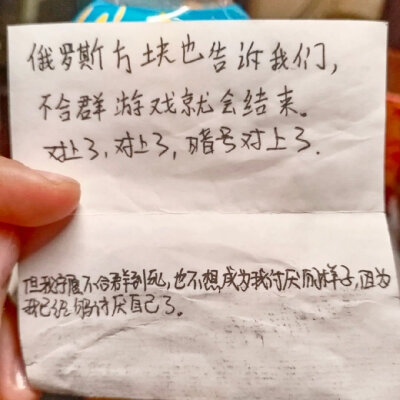 俄罗斯方块也告诉我们，
不合群游戏就会结束。
对上了，对上了，暗号对上了.
但我宁愿不合群到死，也不想成为我讨厌的样子，因为
我已经够讨厌自己了。